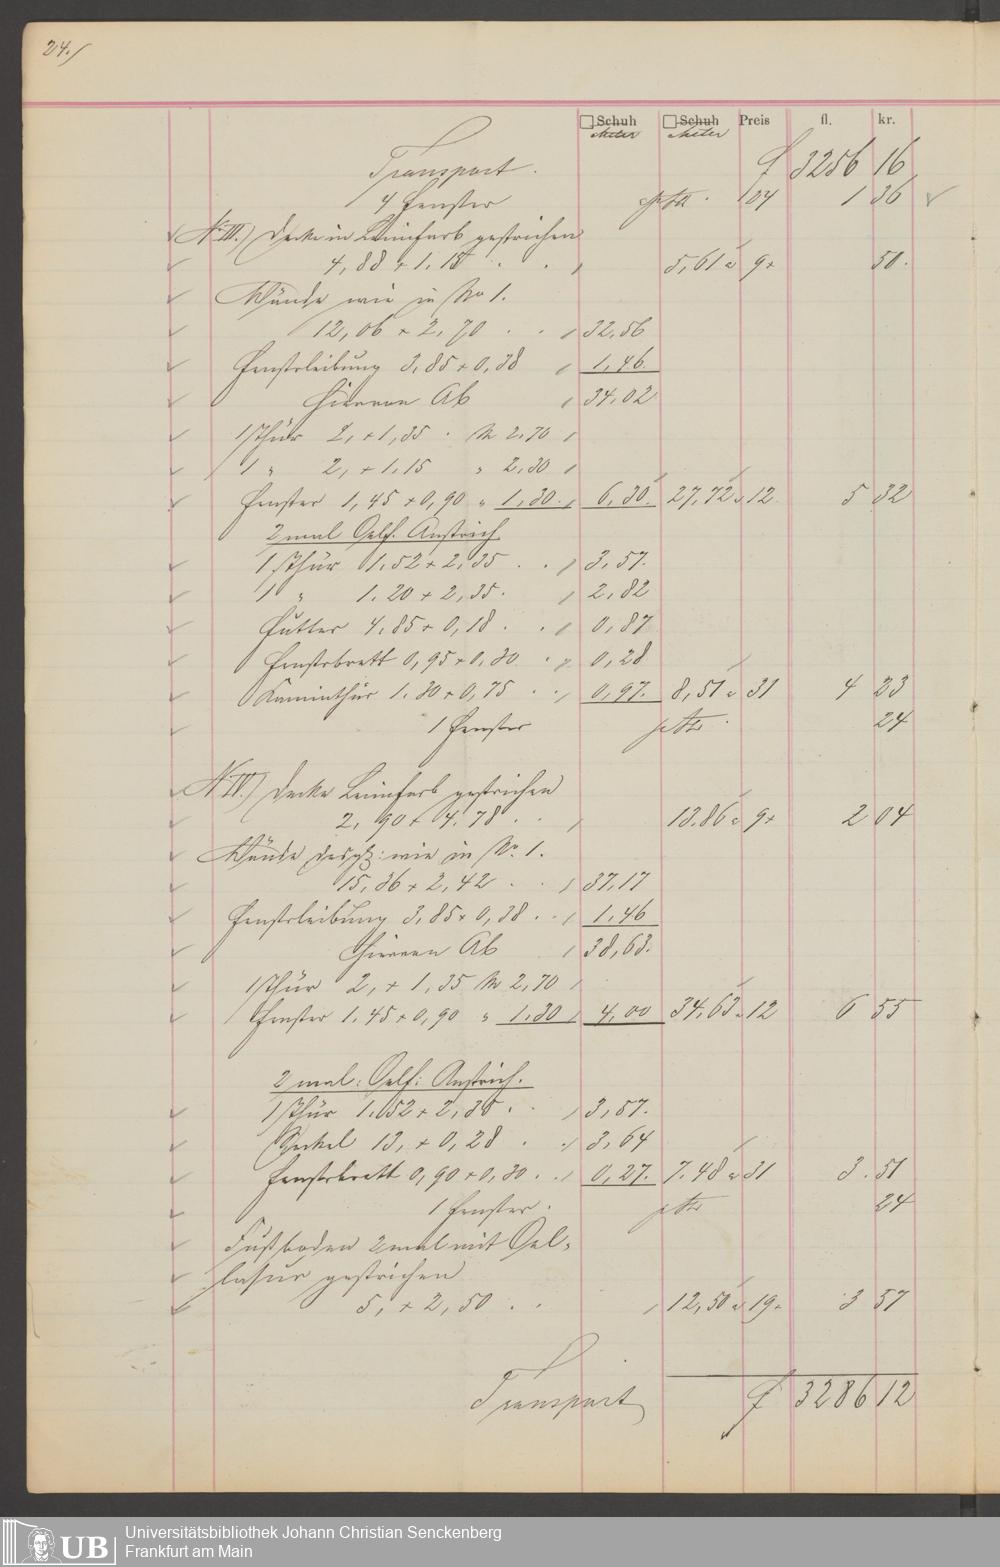 24./
☐ Schuh ☐ Schuh Preis fl. kr.
Meter Meter
Transport. f 3256 16
4 Fenster p Stk. 24 1 36
No III.) Decke in Leimfarb gestrichen
4,88 + 1,15 . . 5,61 a 9 50.
Wände wie in No 1.
12,06 + 2,70 . . 32,56
Fensterleibung 3,85 + 0,38 1,46.
Hiervon Ab 34,02
1 Thür 2, + 1,35 . M 2,70
1 " 2, + 1,15 " 2,30
Fenster 1,45 + 0,90 " 1,30. 6,30. 27,72 a 12 5 32
2 mal Oelf. Anstrich.
1 Thür 1,52 + 2,35 . . 3,57.
1 " 1.20 + 2,35. 2,82
Futter 4,85 + 0,18 . . 0,87
Fensterbrett 0,95 + 0,30 . 0,28
Kaminthür 1,30 + 0,75 . . 0,97. 8,51 a 31 4 23
1 Fenster p Stk. 24
No IV.) Decke Leimfarb gestrichen
2,90 + 4,78 . . 13.86 a 9 2 04
Wände desgl: wie in No. 1.
15,36 + 2,42 . . 37,17
Fensterleibung 3,85 + 0,38 . . 1,46
Hiervon Ab 38,63.
1 Thür 2, + 1,35 M 2,70
Fenster 1.45 + 0,90 " 1,30 4,00 34,63 a 12 6 55
2 mal: Oelf: Anstrich.
1 Thür 1,52 + 2,35 . . 3,57.
Sockel 13, + 0,28 . . 3,64
Fensterbrett 0,90 + 0,30 . . 0,27. 7.48 a 31 3. 51
1 Fenster. p Stk 24
Fußboden 2 mal mit Oel-
lasur gestrichen
5, + 2,50 . . 12,50 a 19 3 57
Transport f 3286 12
UB
Universitätsbibliothek Johann Christian Senckenberg
Frankfurt am Main